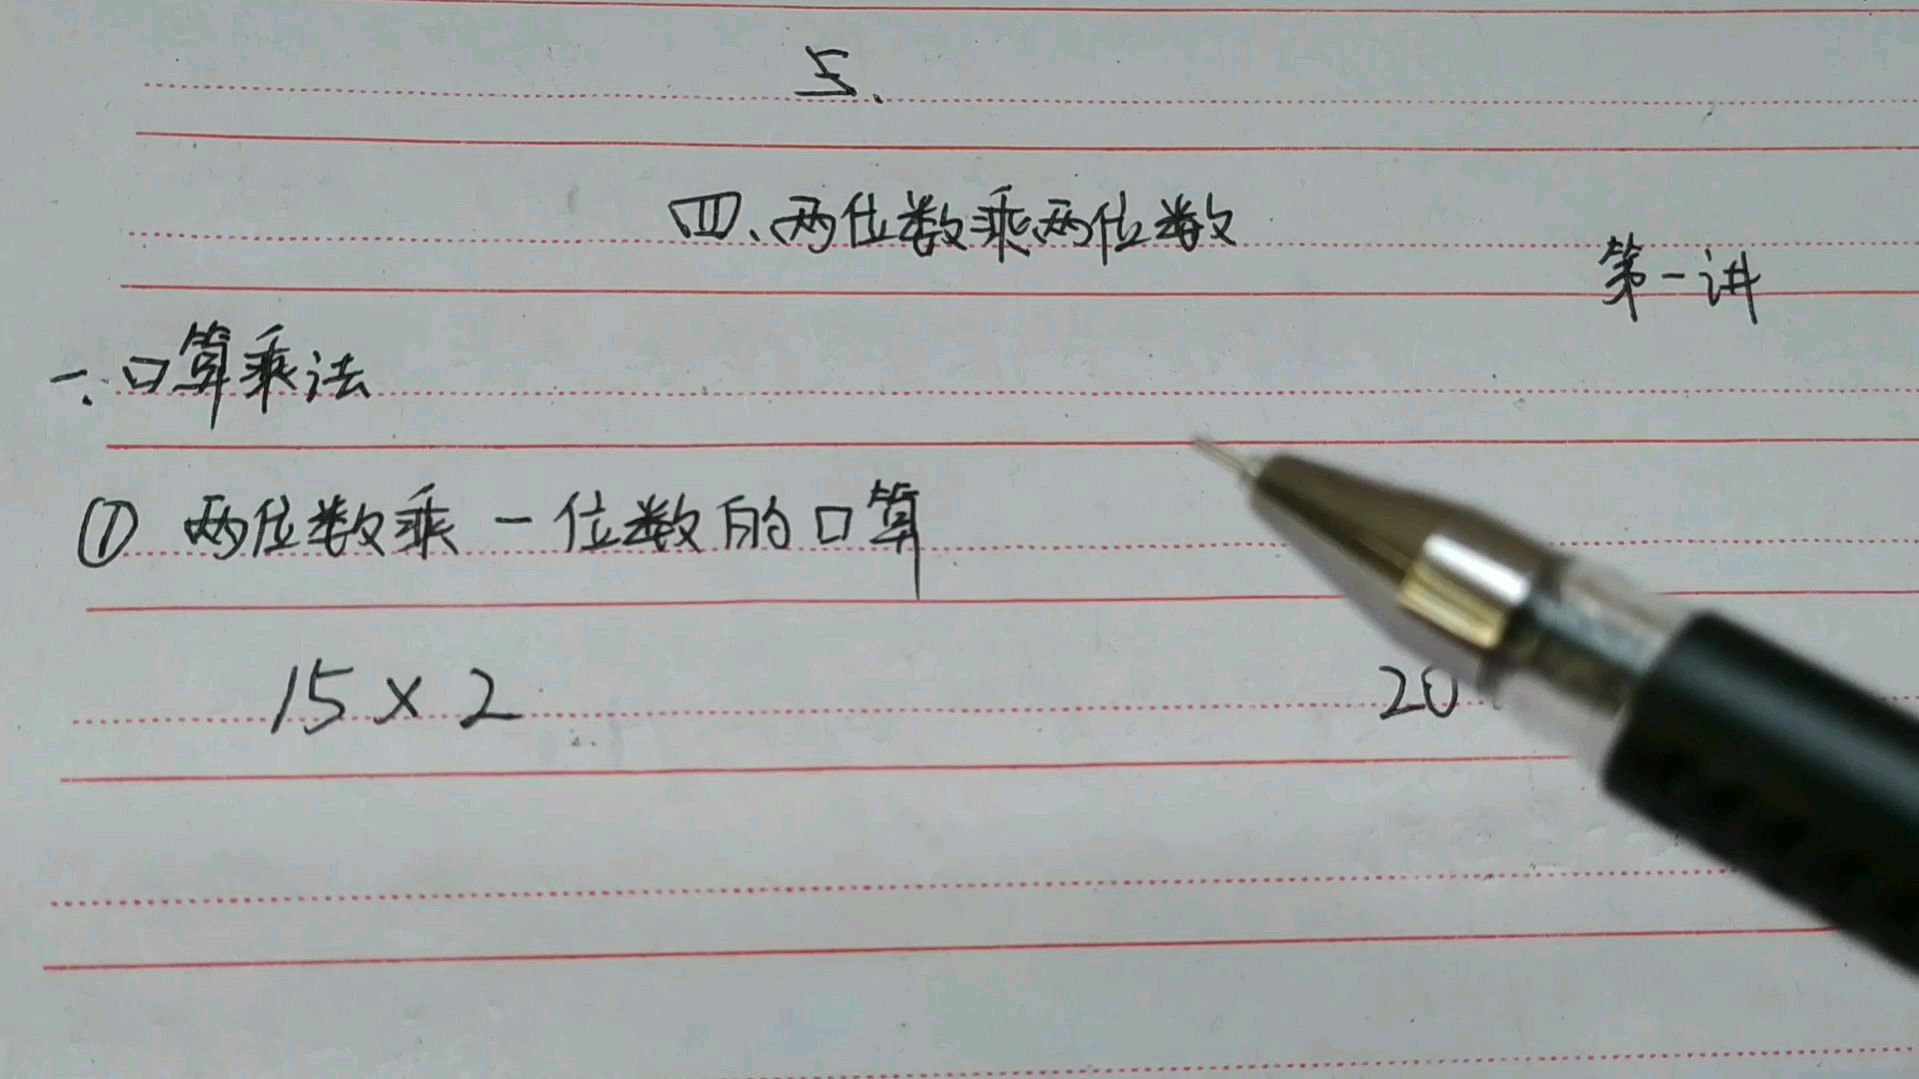 5.
四、两位数乘两位数
第一讲
一.口算乘法
① 两位数乘一位数的口算
15×2 20